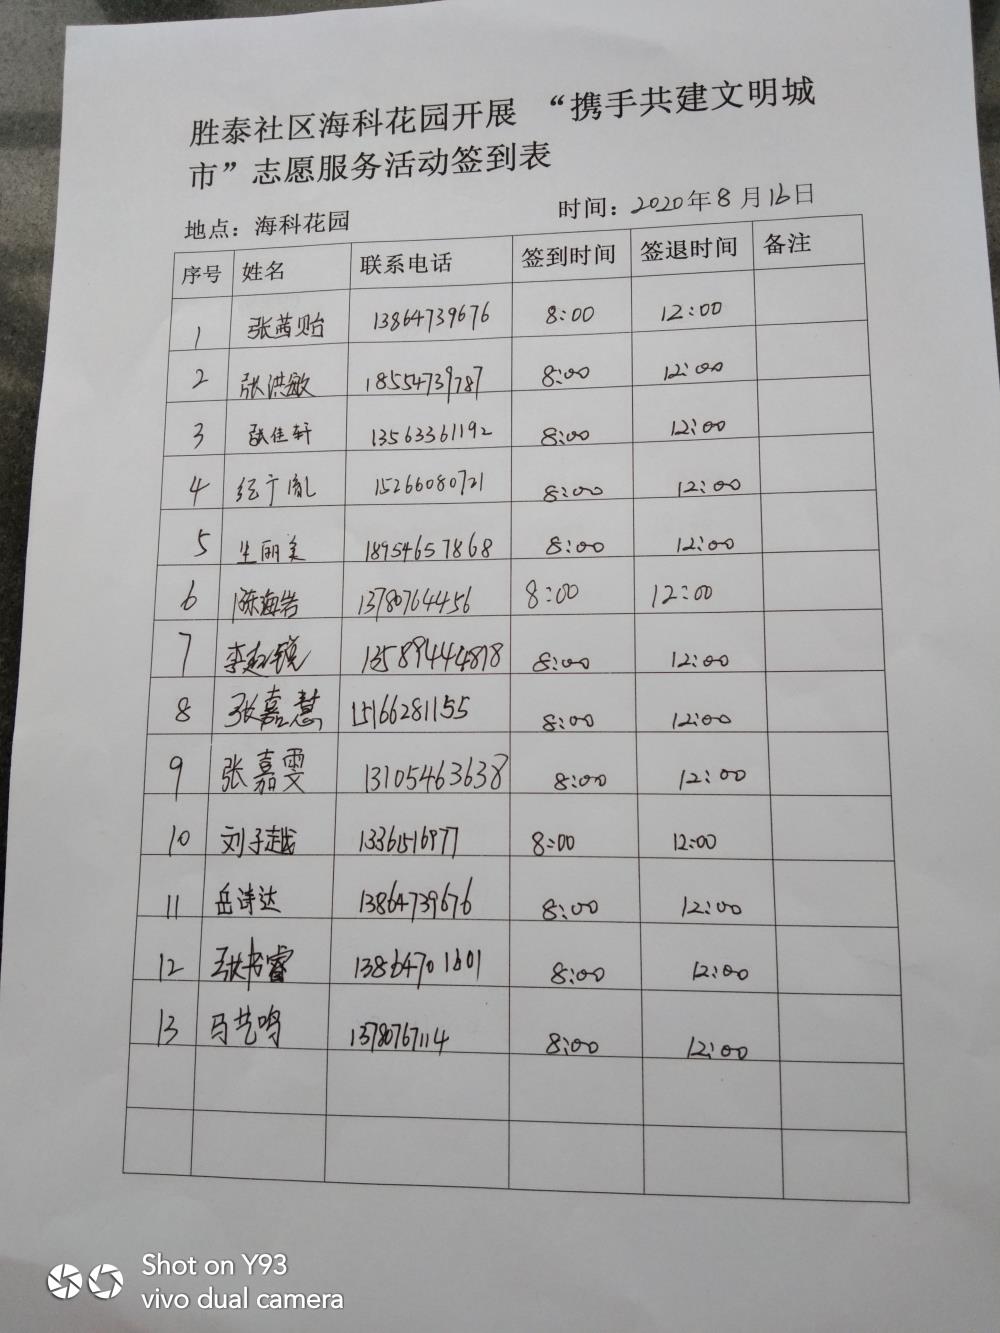 胜泰社区海科花园开展 “携手共建文明城
市”志愿服务活动签到表
地点：海科花园 时间：2020年8月16日
序号 姓名 联系电话 签到时间 签退时间 备注
1 张茜贻 13864739676 8:00 12:00
2 张洪敏 18554739787 8:00 12:00
3 张佳轩 13563361192 8:00 12:00
4 纪宁胤 15266080721 8:00 12:00
5 生丽美 18954657868 8:00 12:00
6 陈海岩 13780764456 8:00 12:00
7 13589444878 8:00 12:00
8 张嘉慧 15166281155 8:00 12:00
9 张嘉雯 13105463638 8:00 12:00
10 刘子越 13361516977 8:00 12:00
11 岳诗达 13864739676 8:00 12:00
12 张书睿 13864701601 8:00 12:00
13 马艺鸣 13780767114 8:00 12:00
Shot on Y93
vivo dual camera